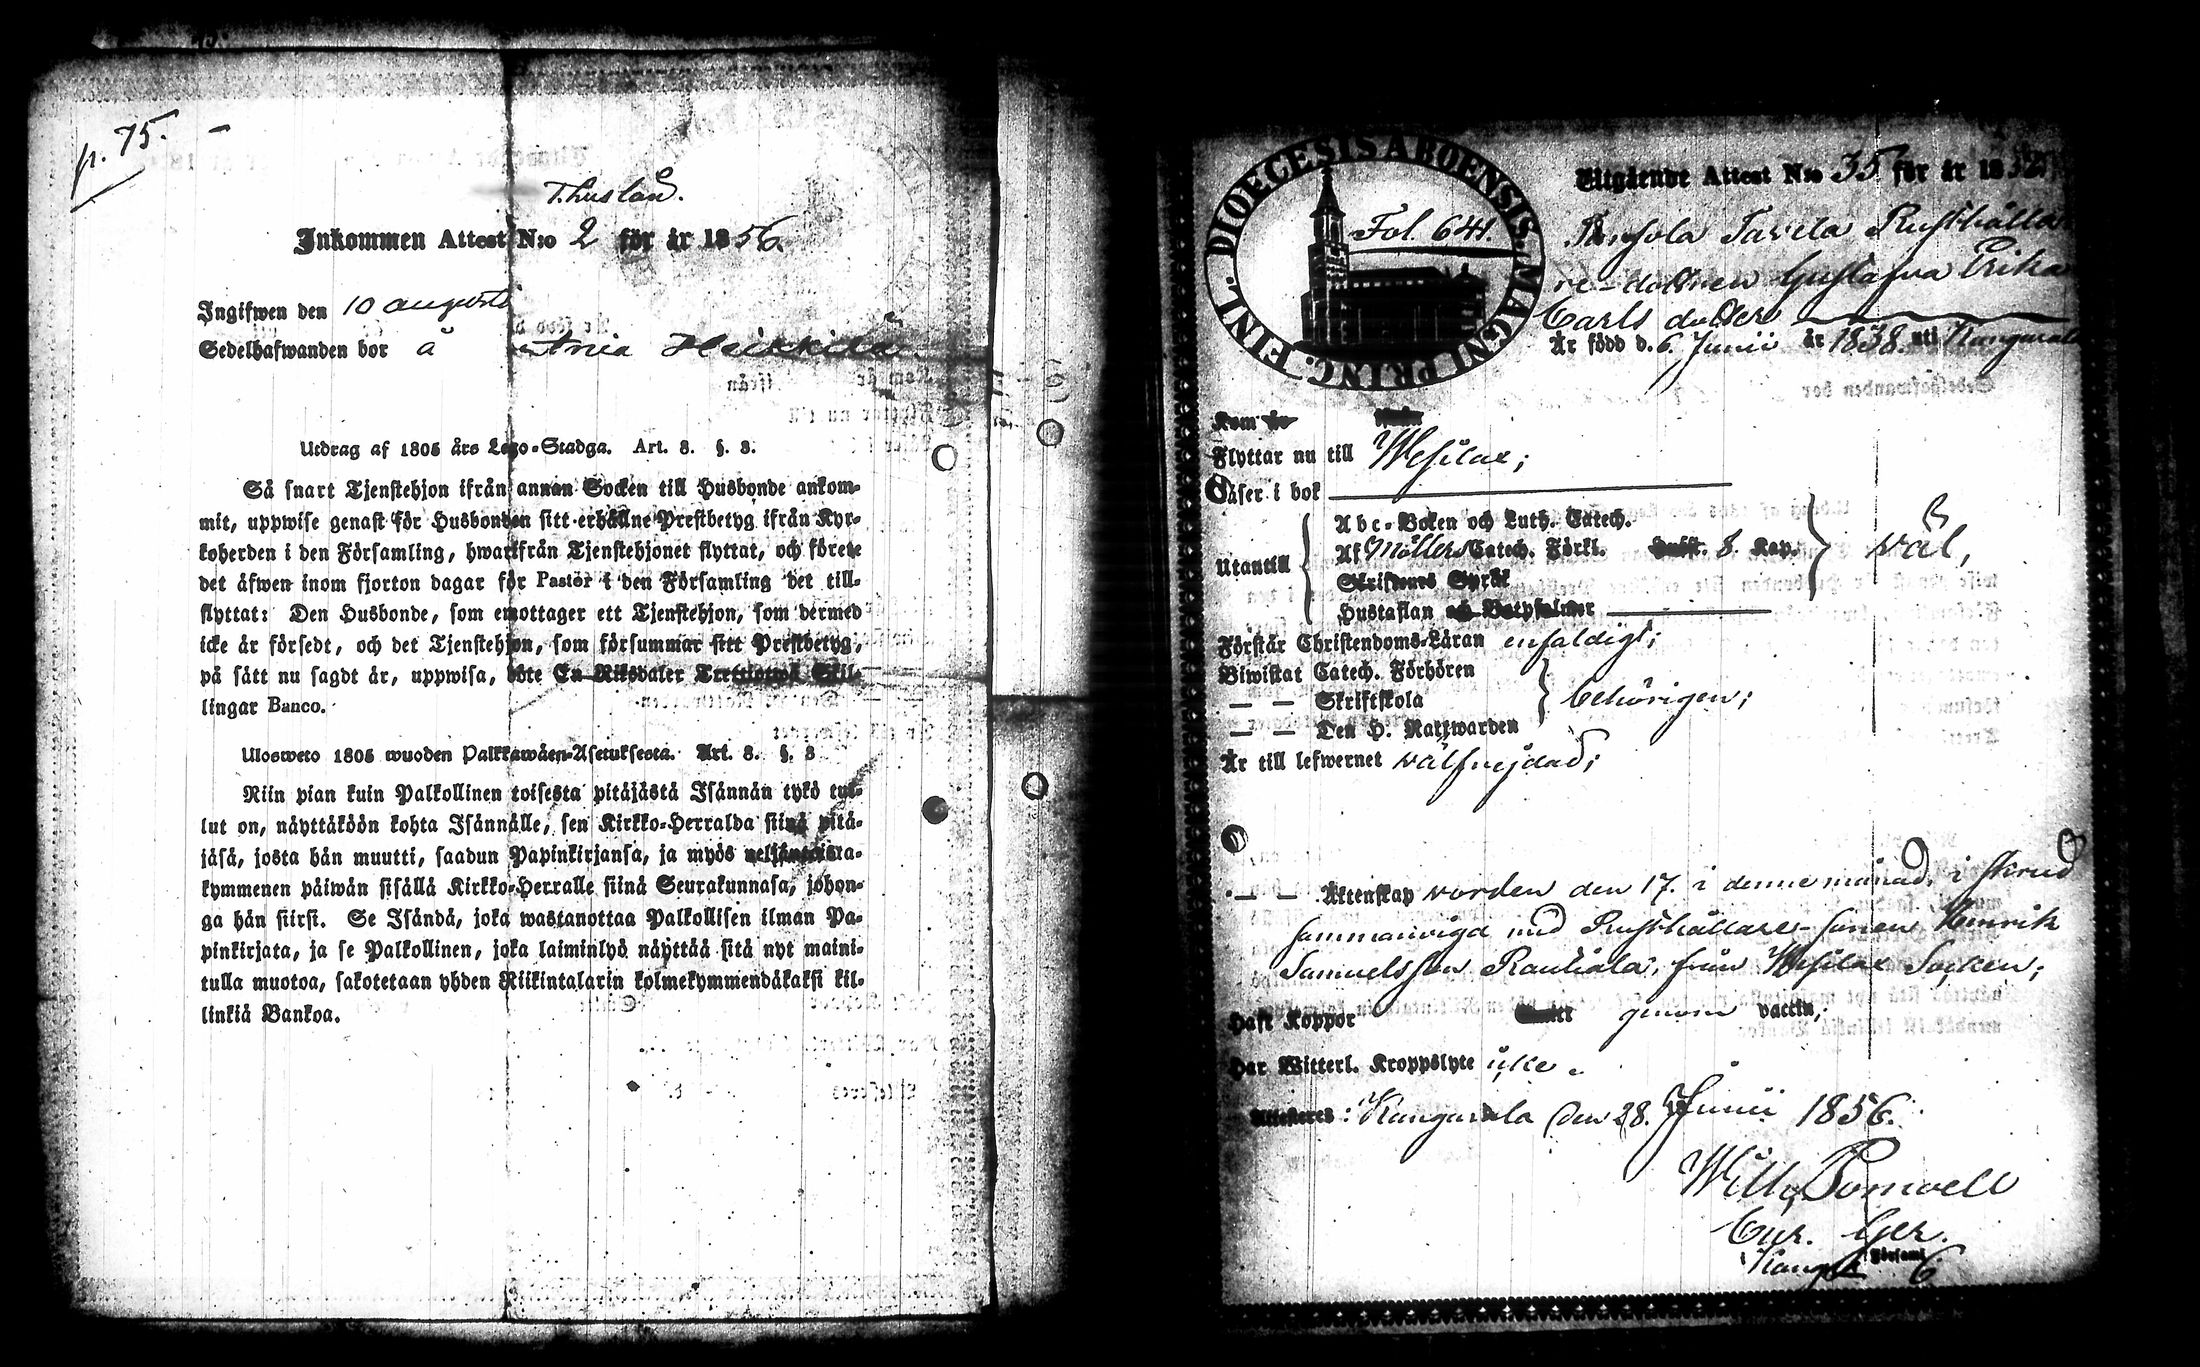 p. 75. -
Thuslån.
Inkommen Attest N:o 2 för år 1856.
Ingifwen den 10 augusti
Sedelhafwanden bor å Heikkilä
Utdrag af 1805 års Lego-Stadga. Art. 8. §. 3.
Så snart Tjenstehjon ifrån annan Socken till Husbonde ankom-
mit, uppwise genast för Husbonden sitt erhållne Prestbetyg ifrån Kyr-
koherden i den Församling, hwarifrån Tjenstehjonet flyttat, och förete
det äfwen inom fjorton dagar för Pastor i den Församling det till-
flyttat: Den Husbonde, som emottager ett Tjenstehjon, som dermed
icke är försedt, och det Tjenstehjon, som försummar sitt Prestbetyg,
på sätt nu sagdt är, uppwisa, böte En Riksdaler Trettiotwå Skil-
lingar Banco.
Ulosweto 1805 wuoden Palkkawäen-Asetuksesta. Art. 8. §. 3
Niin pian kuin Palkollinen toisesta pitäjästä Isännän tykö tul-
lut on, näyttäköön kohta Isännälle, sen Kirkko-Herralda siinä pitä-
jäsä, josta hän muutti, saadun Papinkirjansa, ja myös neljäntoista-
kymmenen päiwän sisällä Kirkko-Herralle siinä Seurakunnasa, johon-
ga hän siirsi. Se Isändä, joka wastanottaa Palkollisen ilman Pa-
pinkirjata, ja se Palkollinen, joka laiminlyö näyttää sitä nyt maini-
tulla muotoa, sakotetaan yhden Riikintalarin kolmekymmendäkaksi kil-
linkiä Bankoa.
FINL. DIOECESIS ABOENSIS. MAGNI PRINC.
Fol. 641.
Utgående Attest N:o 35 för år 18
Tavela Rusthålla
re-dottren Gustafva Erika
Carls dotter
Är född d. 6. Junii år 1838. uti Kangasala
Kom
Flyttar nu till Wesilax;
Läser i bok
Utantill
Abc-Boken och Luth. Catech.
Af Möllers Catech. Förkl. 8. Kap.
Skriftenes Språk
Hustaflan och Botpsalmer
väl,
Förstår Christendoms-Läran enfaldigt;
Biwistat Catech. Förhören
— — Skriftskola
— — Den H. Nattwarden
behörigen;
Är till lefwernet välfrejdad;
— — Äktenskap vorden den 17. i denne månad, i Skrud
sammanvigd med Rusthållare-sonen Henrik
Samuelsson Rautiala, från Wesilax Socken;
Haft Koppor genom vaccin;
Har Witterl. Kroppslyte icke.
Attesteres: Kangasala den 28. Junii 1856.
Församl